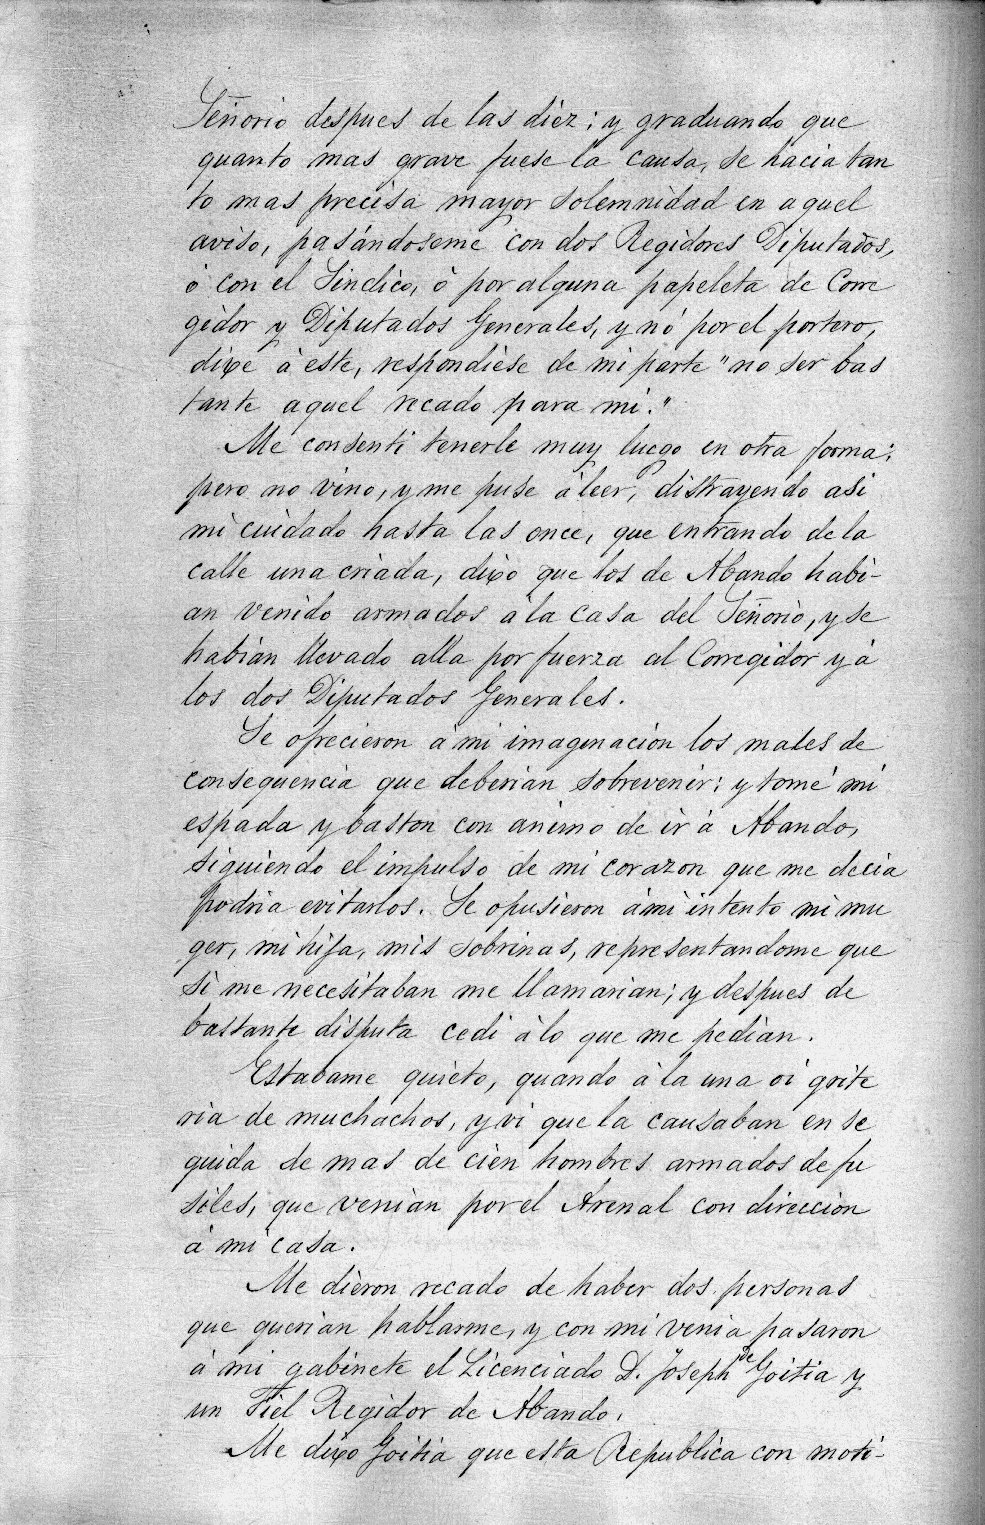 Señorio despues de las diez; y graduando que
quanto mas grave fuese la causa, se hacia tan
to mas precisa mayor solemnidad en aquel
aviso, pasándoseme con dos Regidores Diputados,
ó con el Sindico, ò por alguna papeleta de Corre
gidor y Diputados Generales, y nó por el portero,
dixe à este, respondiese de mi parte "no ser bas
tante aquel recado para mi."
Me consenti tenerle muy luego en otra forma;
pero no vino, y me puse á leer, distrayendo asi
mi cuidado hasta las once, que entrando de la
calle una criada, dixo que los de Abando habi-
an venido armados á la casa del Señorio, y se
habian llevado alla por fuerza al Corregidor y á
los dos Diputados Generales.
Se ofrecieron á mi imaginación los males de
consequencia que deberian sobrevenir; y tomé mi
espada y baston con animo de ir á Abando,
siguiendo el impulso de mi corazon que me decia
podria evitarlos. Se opusieron á mi intento mi mu
ger, mi hija, mis sobrinas, representandome que
si me necesitaban me llamarian; y despues de
bastante disputa cedi á lo que me pedian.
Estabame quieto, quando á la una oí grite
ria de muchachos, y vi que la causaban en se
guida de mas de cien hombres armados de fu
siles, que venian por el Arenal con direccion
á mi casa.
Me dieron recado de haber dos personas
que querian hablarme, y con mi venia pasaron
á mi gabinete el Licenciado D. Joseph de Goitia y
un Fiel Regidor de Abando.
Me dixo Goitia que esta Republica con moti-